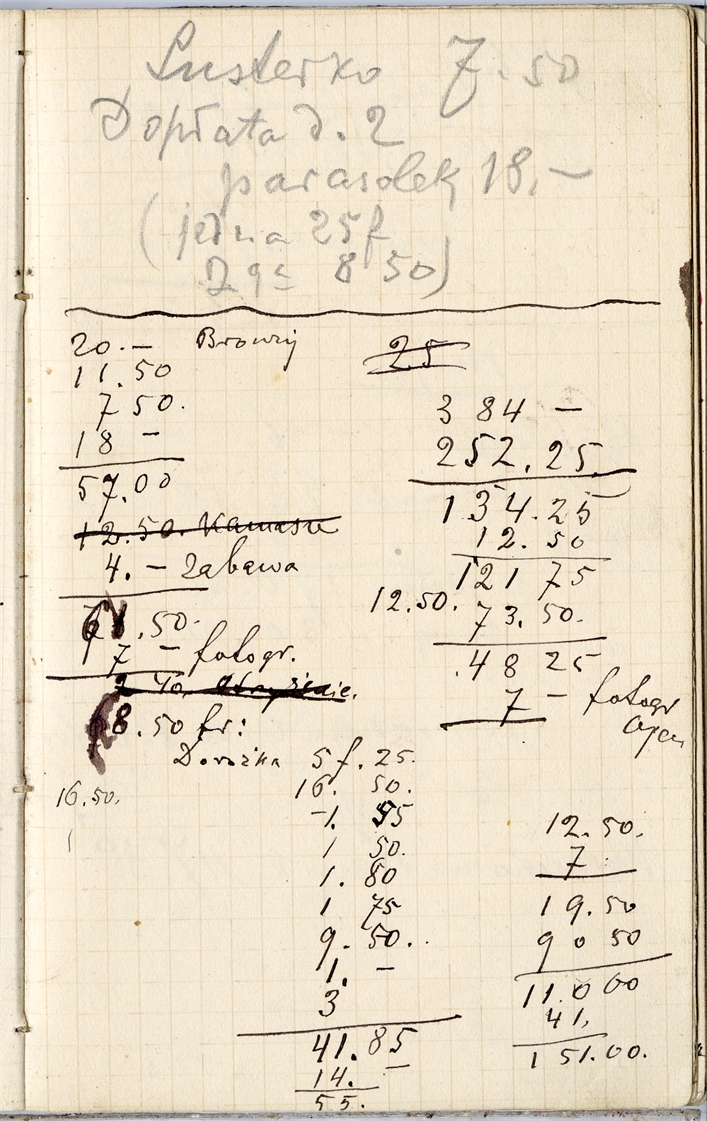 Lusterko 7.50
Dopłata d. 2
parasolek 18,—
(jedna 25f
2ga 8 50)
20.— Browny
11.50
7 50.
18 —
57.00
12.50. Kamasze
4. — Zabawa
61.50.
7 — fotogr.
2 40.
68.50 fr:
25
3 84 —
252.25
134.25
12.50
121 75
12.50. 73.50.
.48 25
7 — fotogr
Dorożka 5f.25.
16.50.
16. 50.
1. 55
1 50.
1. 80
1 75
9. 50..
1. —
3
41.85
14. —
55.
12.50.
7.
19.50
90 50
11.000
41,
151.00.